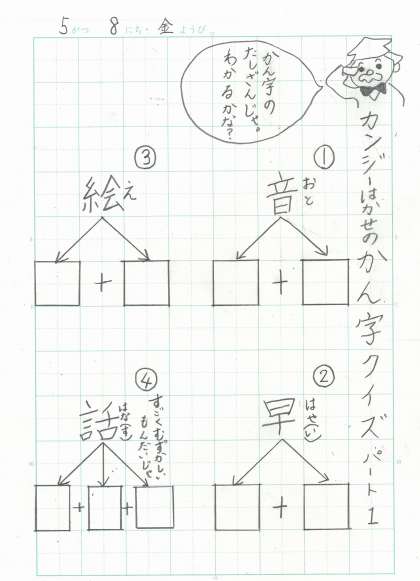 5がつ 8にち・金ようび。
カンジーはかせのかん字クイズ パート1
かん字の
たしざんじゃ。
わかるかな?
①
音 おと
+
②
早 はや(い)
+
③
絵 え
+
④
話 はな(す)
すごくむずかしい
もんだいじゃ
+ +